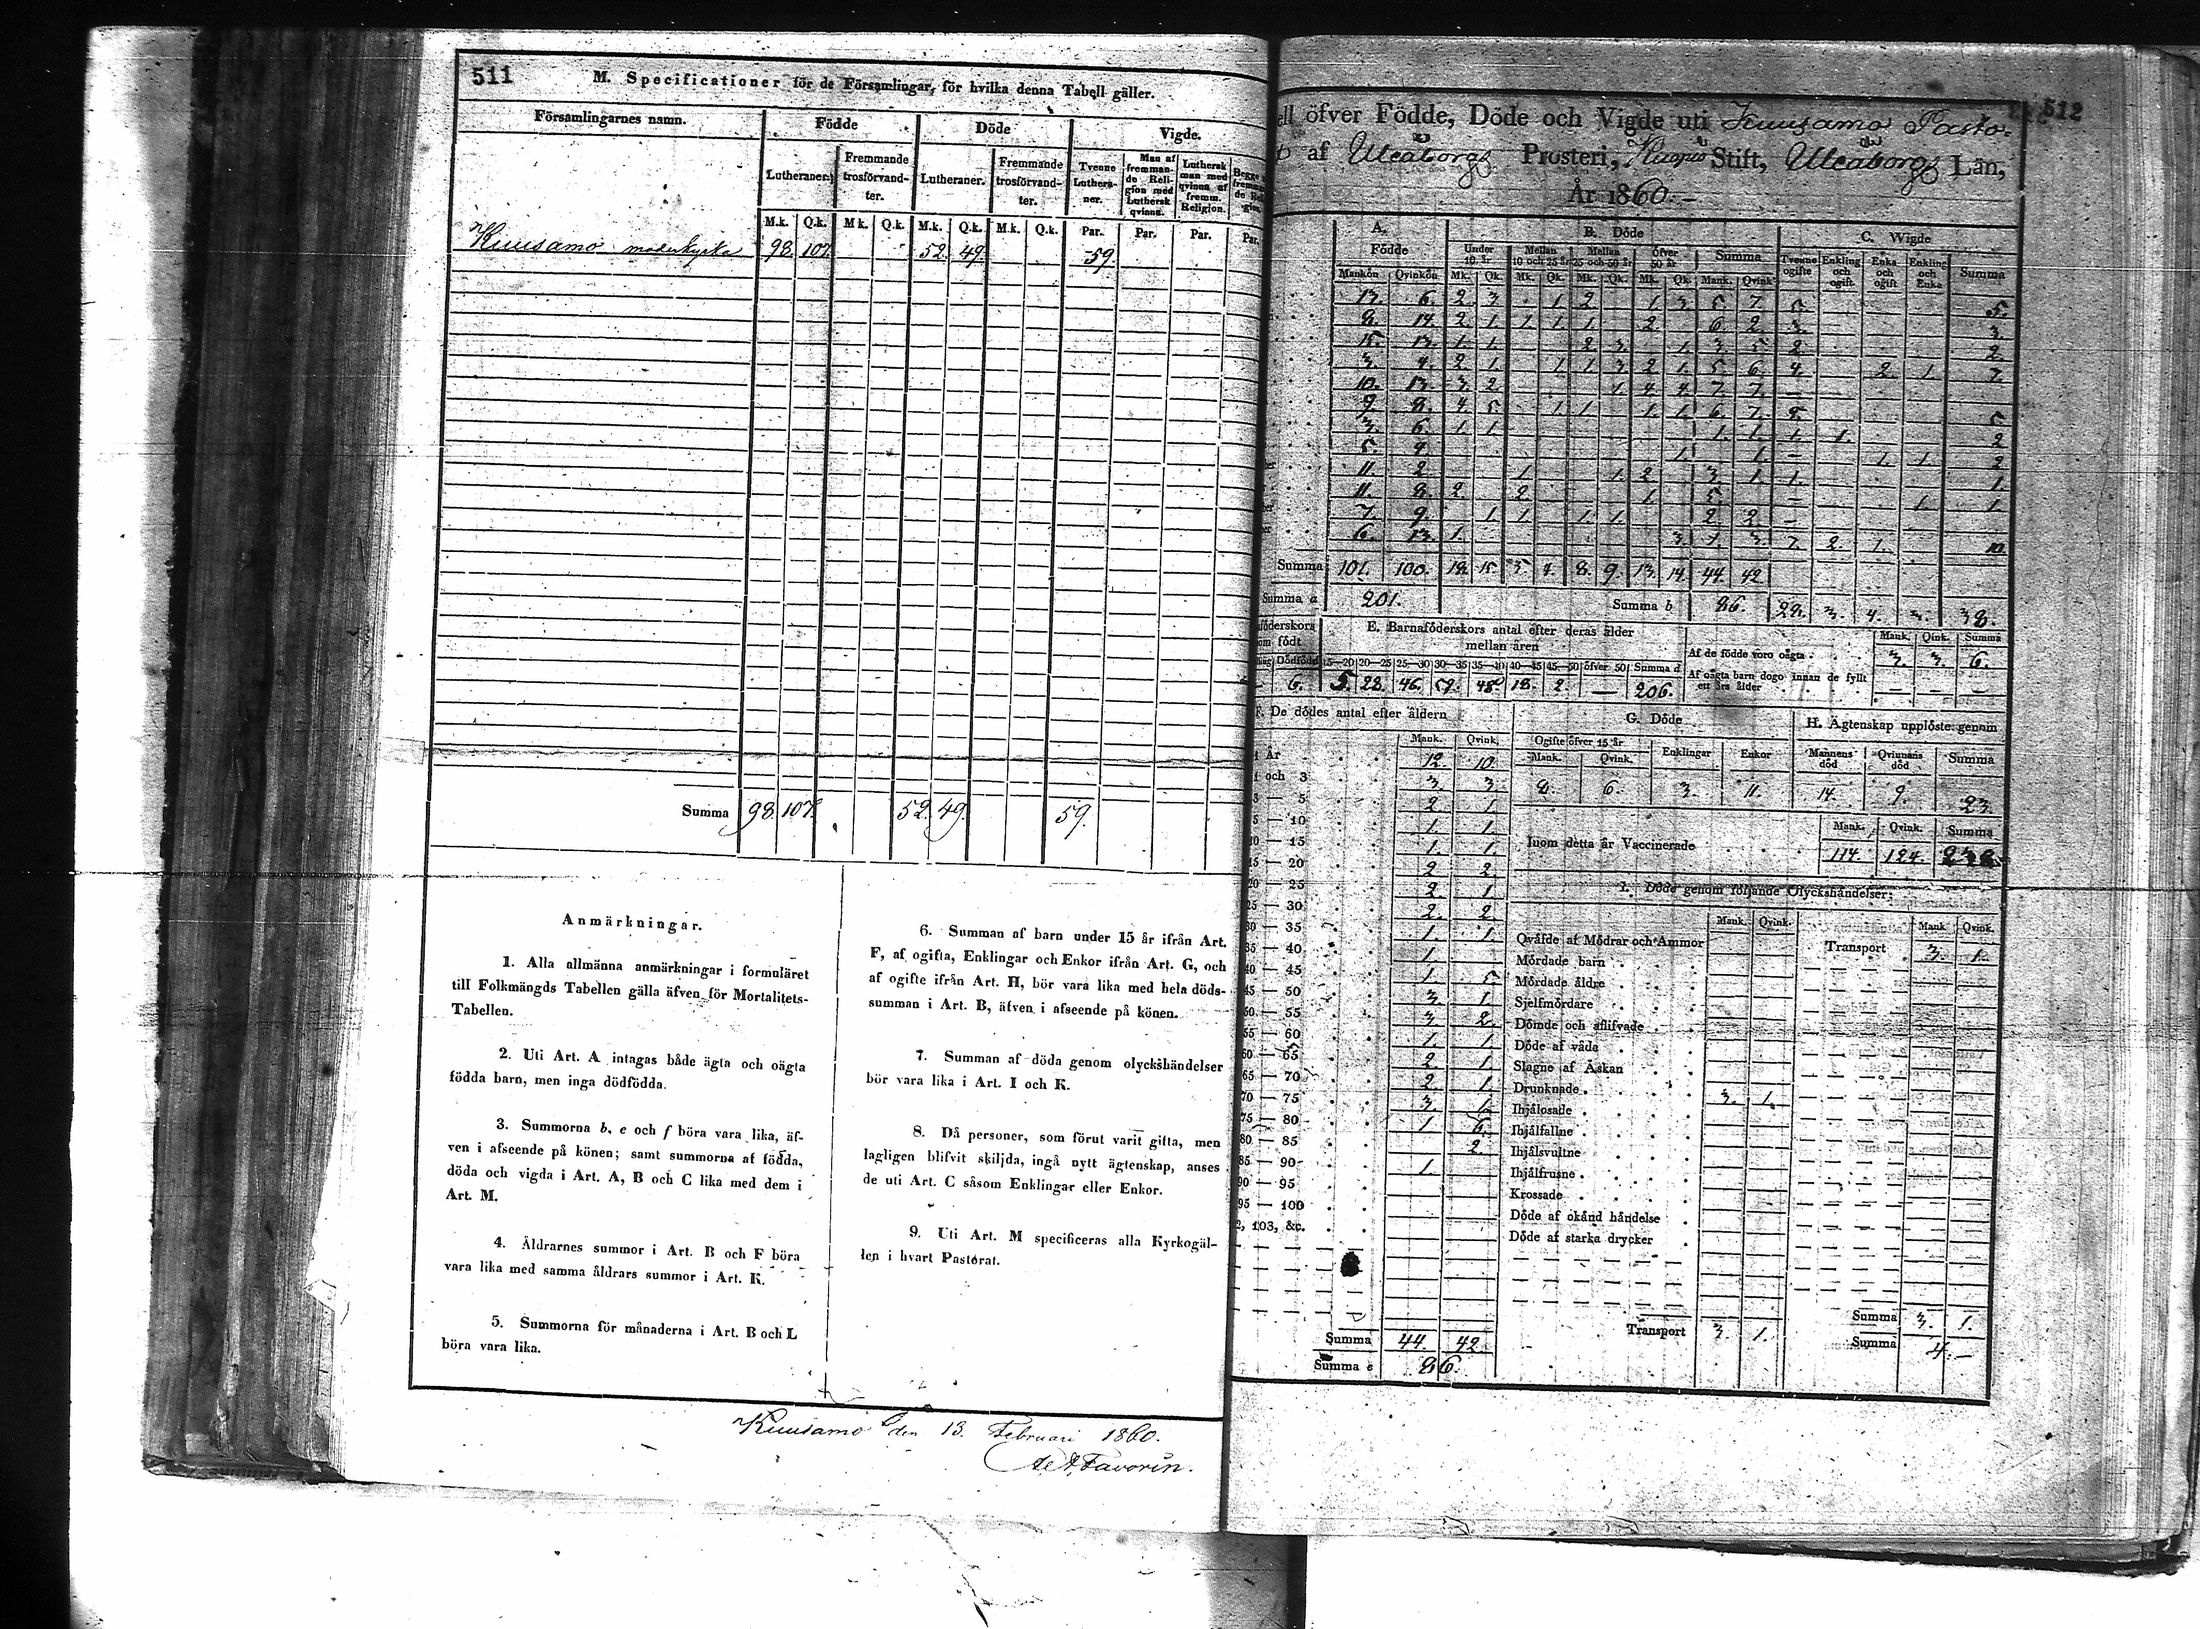 511
M. Specificationer för de Församlingar, för hvilka denna Tabell gäller.
Församlingarnes namn. Födde Döde Vigde.
Lutheraner. Fremmande trosförvandter. Lutheraner. Fremmande trosförvandter. Tvenne Lutheraner. Man af fremmande Religion med Luthersk qvinna. Luthersk man med qvinna af fremm. Religion.
M.k. Q.k. M.k. Q.k. M.k. Q.k. M.k. Q.k. Par. Par. Par. Par.
Kuusamo moderkyrka 98. 107. 52. 49. 59.
Summa 98. 107. 52. 49. 59.
Anmärkningar.
1. Alla allmänna anmärkningar i formuläret
till Folkmängds Tabellen gälla äfven för Mortalitets-
Tabellen.
2. Uti Art. A intagas både ägta och oägta
födda barn, men inga dödfödda.
3. Summorna b, e och f böra vara lika, äf-
ven i afseende på könen; samt summorna af födda,
döda och vigda i Art. A, B och C lika med dem i
Art. M.
4. Åldrarnes summor i Art. B och F böra
vara lika med samma åldrars summor i Art. K.
5. Summorna för månaderna i Art. B och L
böra vara lika.
6. Summan af barn under 15 år ifrån Art.
F, af ogifta, Enklingar och Enkor ifrån Art. G, och
af ogifte ifrån Art. H, bör vara lika med hela döds-
summan i Art. B, äfven i afseende på könen.
7. Summan af döda genom olyckshändelser
bör vara lika i Art. I och K.
8. Då personer, som förut varit gifta, men
lagligen blifvit skiljda, ingå nytt ägtenskap, anses
de uti Art. C såsom Enklingar eller Enkor.
9. Uti Art. M specificeras alla Kyrkogäl-
len i hvart Pastorat.
Kuusamo den 13. Februari 1860.
Favorin.
512
öfver Födde, Döde och Vigde uti Kuusamo Pasto-
af Uleåborgs Prosteri, Kuopio Stift, Uleåborgs Län,
År 1860.
A. Födde B. Döde C. Wigde
Under 10 år. Mellan 10 och 25 år Mellan 25 och 50 år. Öfver 50 år Summa Tvenne ogifte Enkling och ogift. Enka och ogift Enkling och Enka Summa
Mankön Qvinkön Mk. Qk. Mk. Qk. Mk. Qk. Mk. Qk. Mank. Qvink.
13. 6. 2. 3. 1. 2. 1. 3. 5. 7. 5. 5.
8. 14. 2. 1. 1. 1. 1. 2. 6. 2. 3. 3.
15. 13. 1. 1. 2. 3. 1. 3. 5. 2. 2.
3. 4. 2. 1. 1. 1. 3. 2. 1. 5. 6. 4. 2. 1. 7.
10. 13. 3. 2. 1. 4. 4. 7. 7. —
9. 8. 4. 5. 1. 1. 1. 1. 6. 7. 5. 5
3. 6. 1. 1. 1. 1. 1. 1. 2
5. 4. 1. 1. — 1. 1. 2
11. 2. 1. 1. 2. 3. 1. 1. 1.
11. 8. 2. 2. 1. 5. — 1. 1
7. 9. 1. 1. 1. 1. 2. 2. —
6. 13. 1. 3. 1. 3. 7. 2. 1. 10.
Summa 101. 100. 18. 15. 5. 4. 8. 9. 13. 14. 44. 42
Summa a 201. Summa b 86. 28. 3. 4. 3. 38.
E. Barnaföderskors antal efter deras ålder
mellan åren
Dödfödd 15—20 20—25 25—30 30—35 35—40 40—45 45—50 öfver 50 Summa d
6. 5. 28. 46. 59. 48. 18. 2. — 206.
Mank. Qink. Summa
Af de födde voro oägta 3. 3. 6.
Af oägta barn dogo innan de fyllt
ett års ålder — — —
F. De dödes antal efter åldern
Mank. Qvink.
1 År 12. 10.
1 och 3 3. 3.
3 — 5 2. 1.
5 — 10 1. 1.
10 — 15 1. 1.
15 — 20 2. 2.
20 — 25 2. 1.
25 — 30 2. 2.
30 — 35 1. 1.
35 — 40 1.
40 — 45 1. 5.
45 — 50 3. 1.
50 — 55 3. 2.
55 — 60 1. 1.
60 — 65 2. 1.
65 — 70 2. 1.
70 — 75 3. 1.
75 — 80 1. 6.
80 — 85 2.
85 — 90 1.
90 — 95
95 — 100
103, &c.
Summa 44. 42
Summa e 86.
G. Döde
Ogifte öfver 15 år Enklingar Enkor
Mank. Qvink.
8. 6. 3. 11.
H. Ägtenskap upplöste genom
Mannens död Qvinnans död Summa
14. 9. 23
Mank. Qvink. Summa
Inom detta år Vaccinerade 114. 124. 238
I. Döde genom följande Olyckshändelser:
Mank. Qvink. Mank. Qvink.
Qväfde af Mödrar och Ammor Transport 3. 1.
Mördade barn
Mördade äldre
Sjelfmördare
Dömde och aflifvade
Döde af våda
Slagne af Åskan
Drunknade 3. 1.
Ihjälosade
Ihjälfallne
Ihjälsvultne
Ihjälfrusne
Krossade
Döde af okänd händelse
Döde af starka drycker
Summa 3. 1.
Transport 3. 1. Summa 4. —